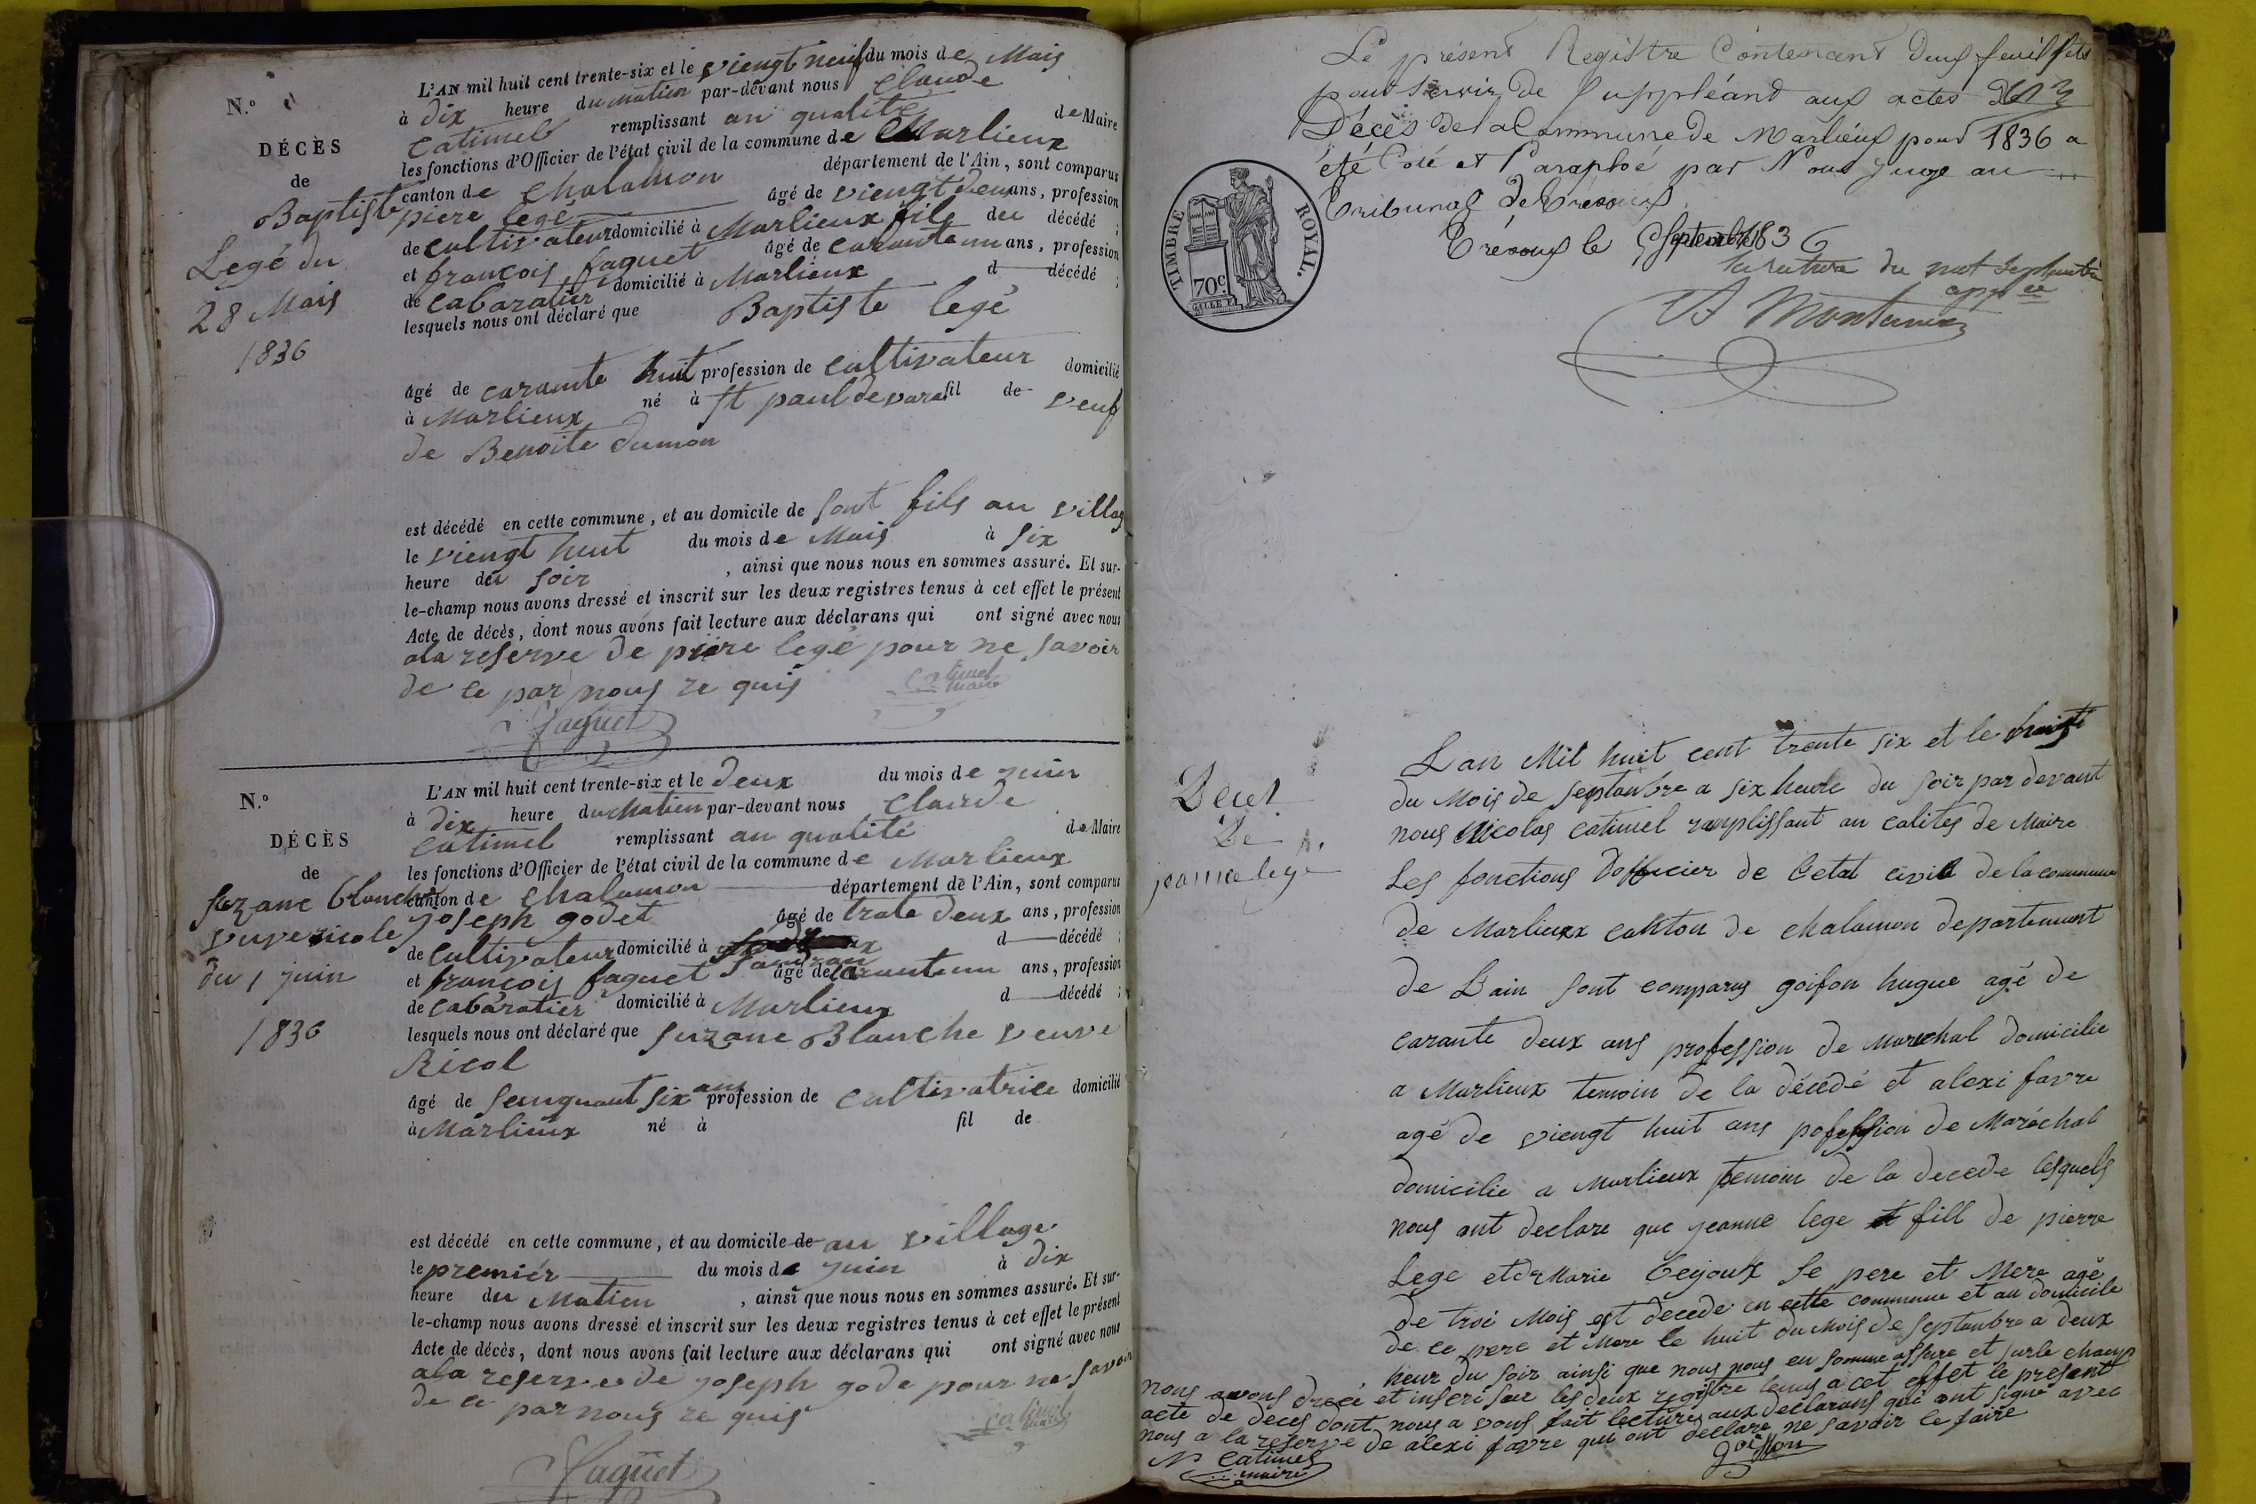 N.º
DÉCÈS
de
Baptiste
Legé du
28 Mais
1836
L'AN mil huit cent trente-six et le viengt neuf du mois de Mais
à dix heure du matien par-devant nous Claude
Catimel remplissant an qualité de Maire
les fonctions d'Officier de l'état civil de la commune de Marlieux
canton de Chalamon département de l'Ain, sont comparus
piere legé âgé de viengt deux ans, profession
de cultivateur domicilié à Marlieux fils du décédé ;
et françois faguet âgé de caranteun ans, profession
de cabaratier domicilié à Marlieux d décédé ;
lesquels nous ont déclaré que Baptiste legé
âgé de caramte huit profession de cultivateur domicilié
à Marlieux né à st paul devarax fil de veuf
de Benoite dumon
est décédé en cette commune, et au domicile de sont fils au villag
le viengt huit du mois de Mais à six
heure du soir , ainsi que nous nous en sommes assuré. Et sur-
le-champ nous avons dressé et inscrit sur les deux registres tenus à cet effet le présent
Acte de décès, dont nous avons fait lecture aux déclarans qui ont signé avec nous
ala reserve de piere legé pour ne savoir
de ce par nous re quis
Catimel
maire
faguet
N.º
DÉCÈS
de
suzane blanche
vuve ricole
du 1 juin
1836
L'AN mil huit cent trente-six et le deux du mois de juin
à dix heure du Matien par-devant nous Claude
Catimel remplissant an qualité de Maire
les fonctions d'Officier de l'état civil de la commune de Marlieux
canton de Chalamon département de l'Ain, sont comparus
joseph godet âgé de trate deux ans, profession
de cultivateur domicilié à d décédé ;
et françois faguet âgé de caranteun ans, profession
de cabaratier domicilié à Marlieux d décédé ;
lesquels nous ont déclaré que suzane Blanche veuve
Ricol
âgé de seinquant six ans profession de cultivatrice domicilié
à Marlieux né à fil de
est décédé en cette commune, et au domicile de au village
le premiér du mois de juin à dix
heure du Matien , ainsi que nous nous en sommes assuré. Et sur-
le-champ nous avons dressé et inscrit sur les deux registres tenus à cet effet le présent
Acte de décès, dont nous avons fait lecture aux déclarans qui ont signé avec nous
ala reserve de joseph gode pour ne savoir
de ce par nous re quis
Catimel
maire
faguet
Le présent Registre Contenant deux feuillets
pour servir de Suppléand aux actes de
Décès de la Commune de Marlieux pour 1836 a
été Coté et Paraphé par Nous Juge au
Tribunal de Trévoux
Trévoux le Septembre 1836
TIMBRE ROYAL.
70 c.
Decet
De
jeanne lege
Lan Mil huit cent trente six et le
du Mois de septanbre a six heure du soir par devant
nous Nicolas catimel ranplissant an calites de Maire
Les fonctions Dofficier de Letat civil de la commune
de Marlieux canton de chalamon departement
de Lain sont comparus goifon hugue agé de
carante deux ans profession de Marechal domicilie
a Marlieux temoin de la décédé et alexi favre
agé de viengt huit ans pofession de Maréchal
domicilie a Marlieux temoin de la decede lesquels
nous ont declare que jeanne lege fill de pierre
Lege et de Marie Se pere et Mere agé
de troi Mois est decede en cette commune et au domicile
de ce pere et Mere le huit du Mois de septanbre a deux
heur du soir ainsi que nous nous en somme assure et surle champ
nous avons drecé et inscri sur les deux registre tenus a cet effet le present
acte de deces dont nous a vons fait lecture aux declarans qui ont signé avec
nous a la reserve de alexi favre qui ont declare ne savoir le faire
N Catimel goiffon
maire